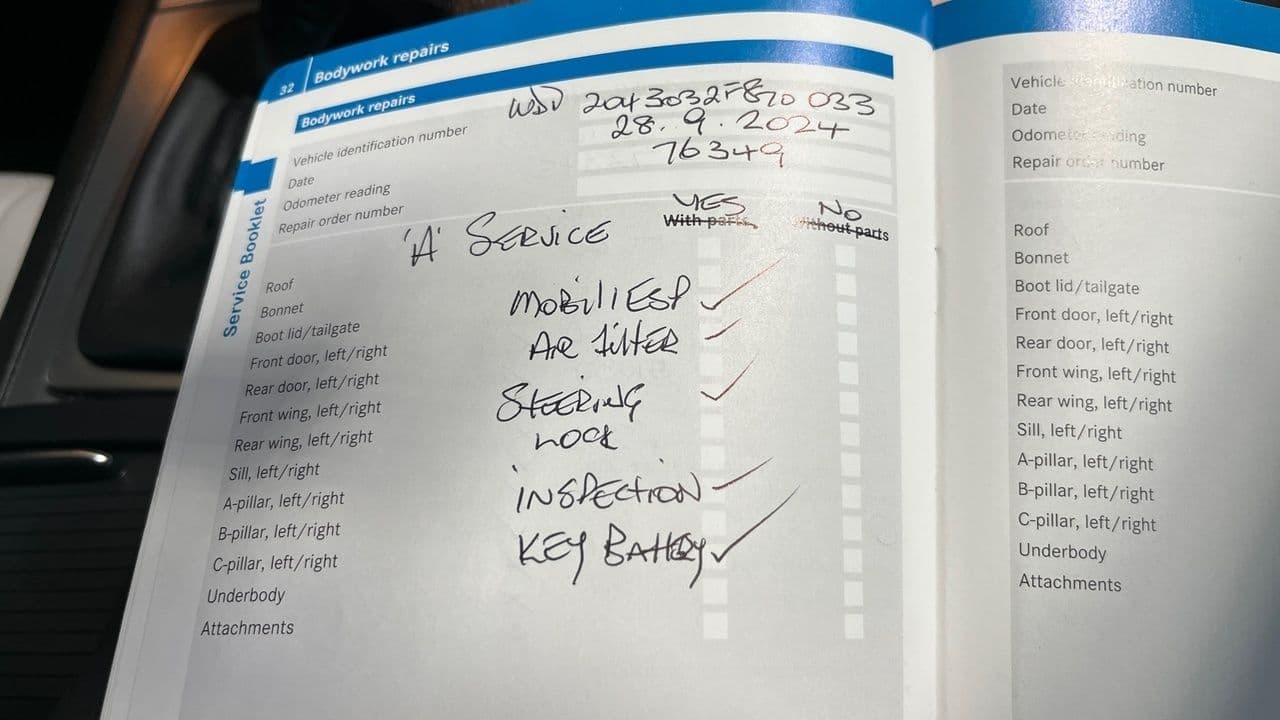 32 Bodywork repairs
Bodywork repairs
Vehicle identification number WDD 2043032F870 033
Date 28.9.2024
Odometer reading 76349
Repair order number
YES NO
With parts Without parts
'A' SERVICE
Service Booklet
Roof
Bonnet MOBIL 1 ESP ✓
Boot lid/tailgate
Front door, left/right AIR FILTER ✓
Rear door, left/right
Front wing, left/right STEERING ✓
Rear wing, left/right LOCK
Sill, left/right
A-pillar, left/right INSPECTION ✓
B-pillar, left/right
C-pillar, left/right KEY BATTERY ✓
Underbody
Attachments
Vehicle identification number
Date
Odometer reading
Repair order number
Roof
Bonnet
Boot lid/tailgate
Front door, left/right
Rear door, left/right
Front wing, left/right
Rear wing, left/right
Sill, left/right
A-pillar, left/right
B-pillar, left/right
C-pillar, left/right
Underbody
Attachments